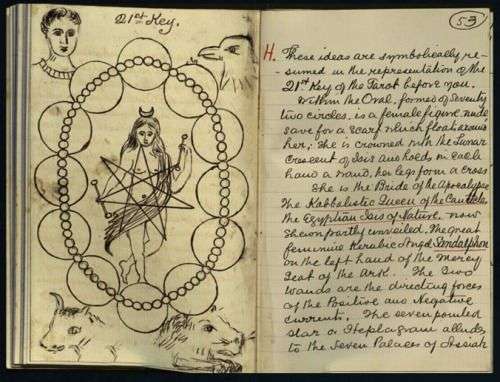 21st Key.
53
H. These ideas are symbolically re-
-sumed in the representation of the
21st Key of the Tarot before you.
Within the Oval, formed of Seventy
two circles, is a female figure, nude
save for a scarf which floats round
her; She is crowned with the Lunar
Crescent of Isis and holds in each
hand a wand, her legs form a cross
She is the Bride of the Apocalypse
The Kabbalistic Queen of the Canticles,
the Egyptian Isis of Nature, now
Shewn partly unveiled, The Great
feminine Kerubic Angel Sandalphon
on the left hand of the Mercy
Seat of the Ark. The two
wands are the directing forces
of the Positive and Negative
Currents. The seven pointed
star or Heptagram alludes
to the Seven Palaces of Assiah